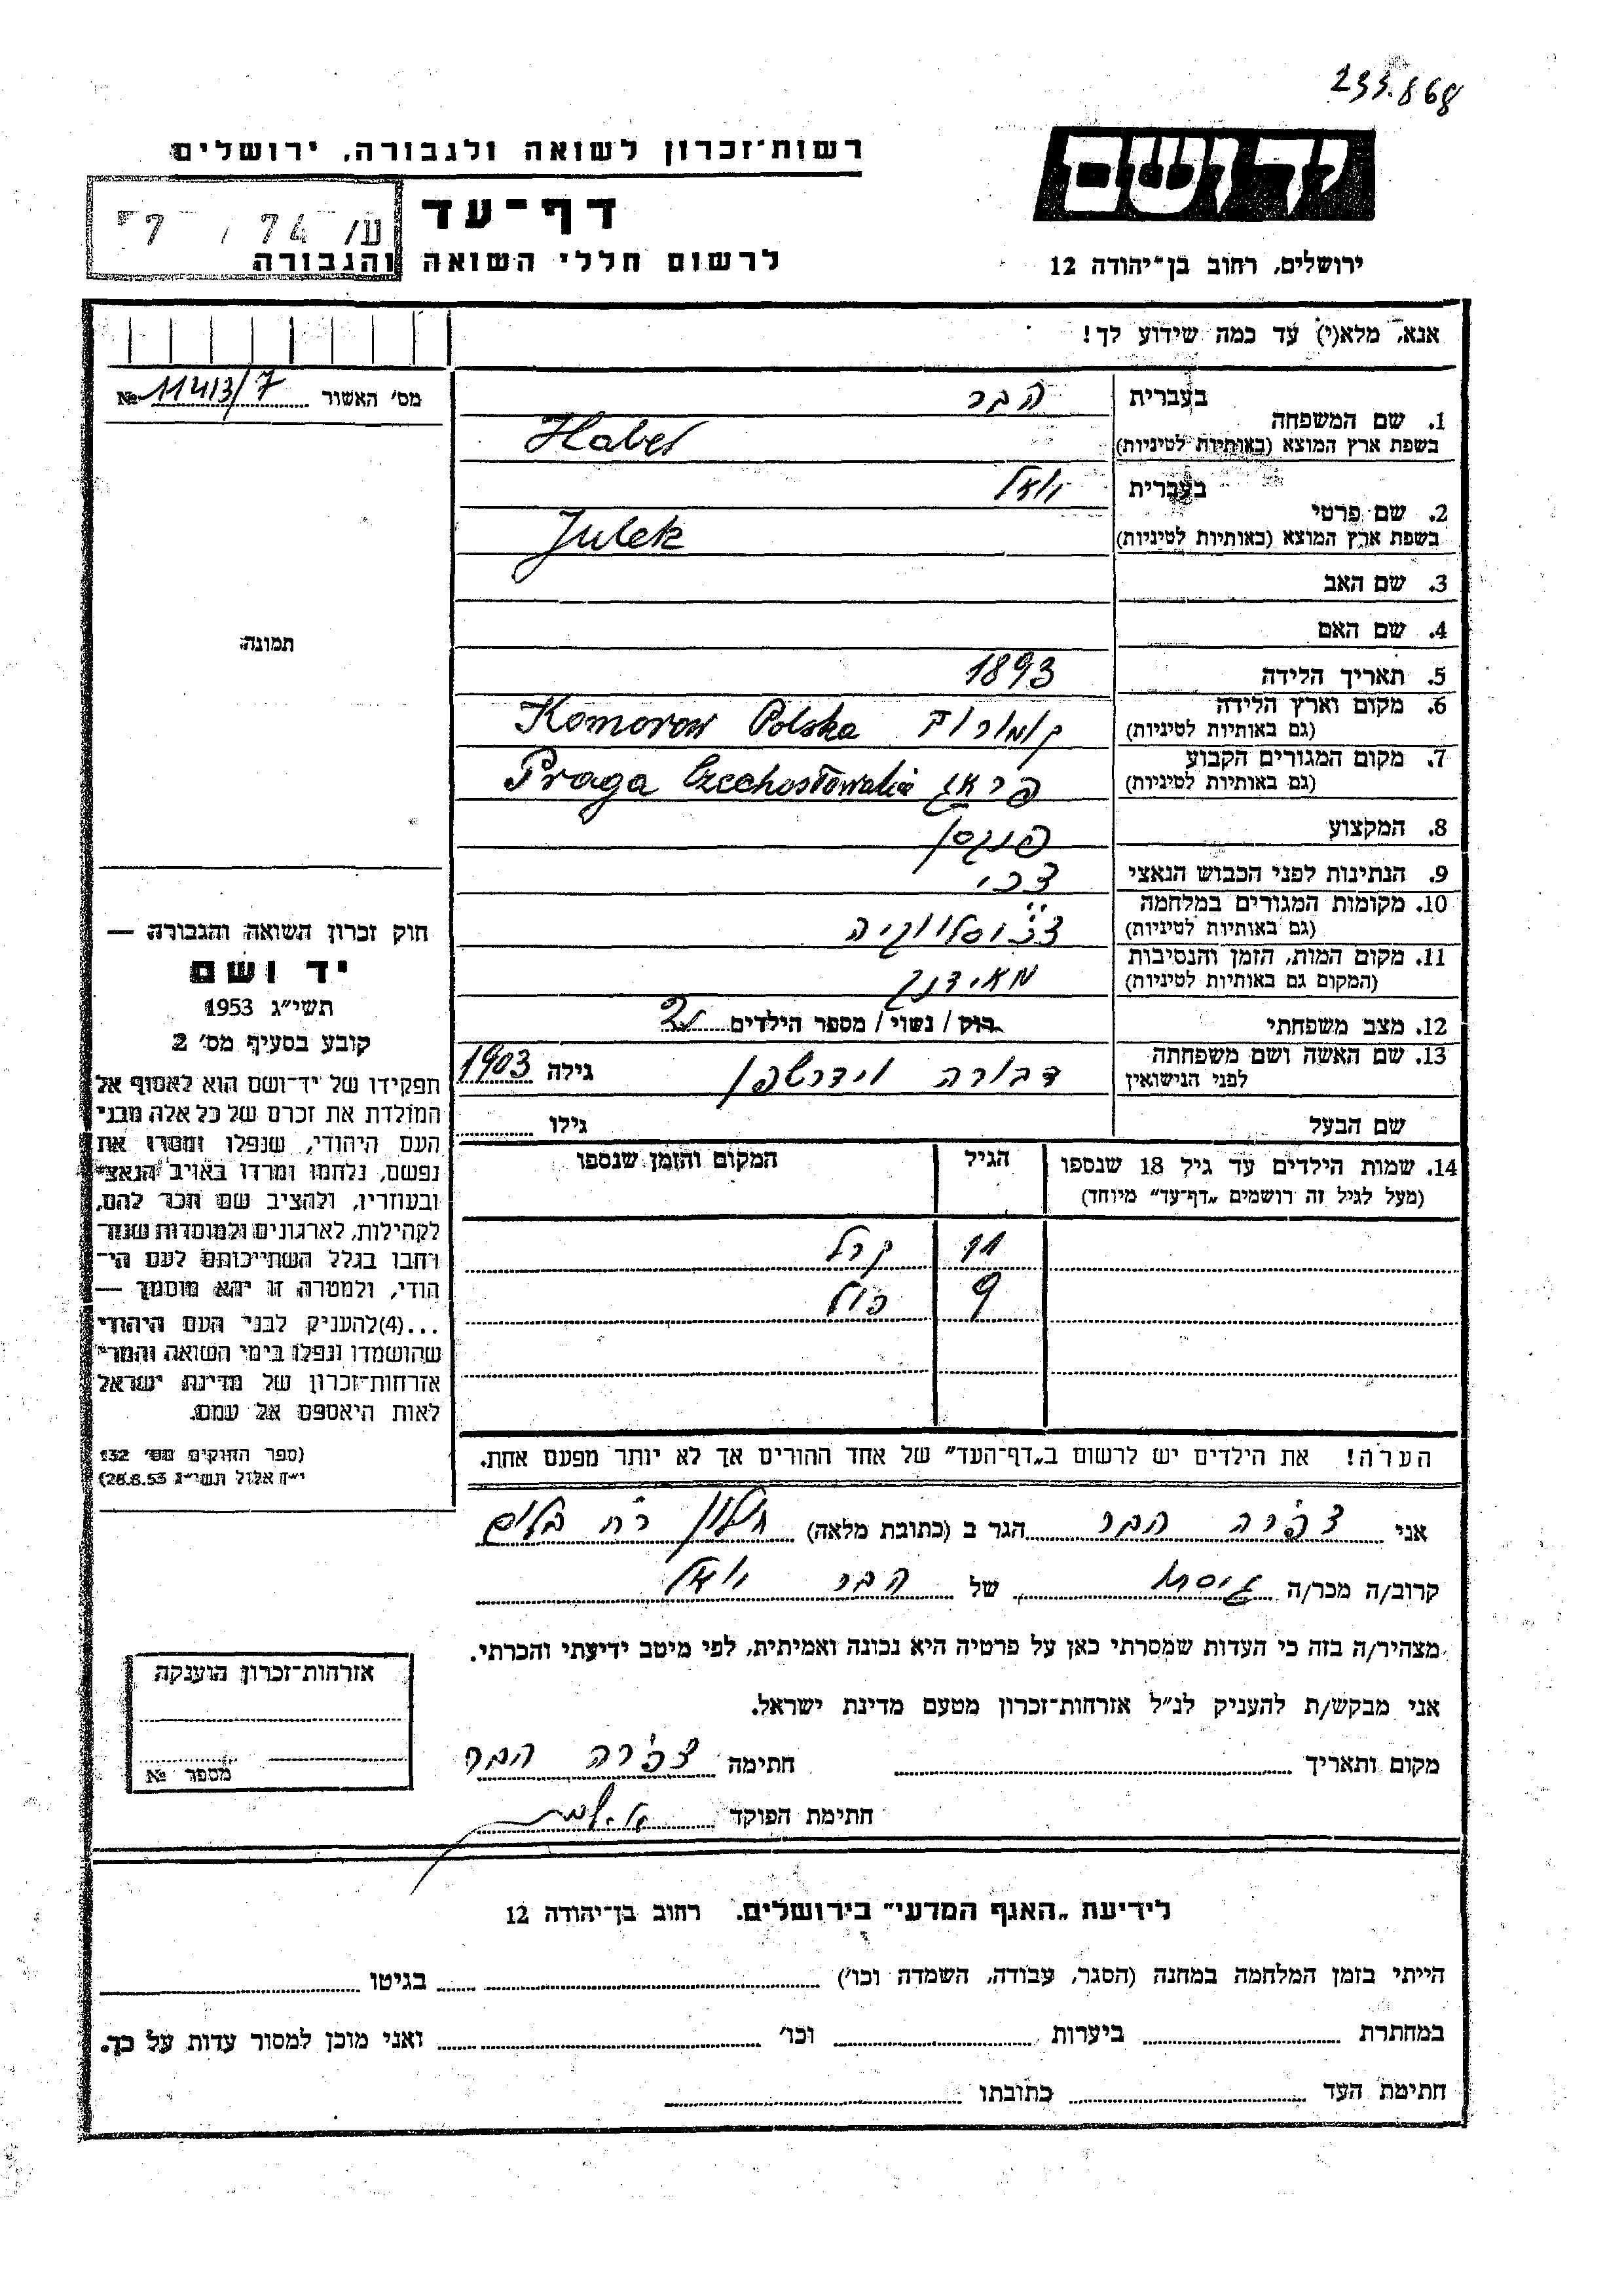 233.868
רשות־זכרון לשואה ולגבורה, ירושלים
יד ושם
דף־עד
ע/ 74 / 57
לרשום חללי השואה והגבורה
ירושלים, רחוב בן־יהודה 12
אנא, מלא(י) עד כמה שידוע לך!
מס' האשור № 11413/7
1. שם המשפחה
בעברית הבר
בשפת ארץ המוצא (באותיות לטיניות) Haber
2. שם פרטי
בעברית
בשפת ארץ המוצא (באותיות לטיניות) Julek
3. שם האב
4. שם האם
תמונה
5. תאריך הלידה 1893
6. מקום וארץ הלידה
(גם באותיות לטיניות) קומורוב Komorow Polska
7. מקום המגורים הקבוע
(גם באותיות לטיניות) פראג Praga Czechosłowakia
8. המקצוע
9. הנתינות לפני הכבוש הנאצי צ'כי
10. מקומות המגורים במלחמה
(גם באותיות לטיניות) צ'כוסלווקיה
11. מקום המות, הזמן והנסיבות
(המקום גם באותיות לטיניות) מאידנק
12. מצב משפחתי רוק / נשוי / מספר הילדים 2
13. שם האשה ושם משפחתה
לפני הנישואין דבורה גילה 1903
שם הבעל גילו
14. שמות הילדים עד גיל 18 שנספו
(מעל לגיל זה רושמים „דף־עד” מיוחד)
הגיל
המקום והזמן שנספו
11 קרל
9 פול
הערה! את הילדים יש לרשום ב„דף־העד” של אחד ההורים אך לא יותר מפעם אחת.
חוק זכרון השואה והגבורה —
יד ושם
תשי״ג 1953
קובע בסעיף מס' 2
תפקידו של יד־ושם הוא לאסוף אל
המולדת את זכרם של כל אלה מבני
העם היהודי, שנפלו ומסרו את
נפשם, נלחמו ומרדו באויב הנאצי
ובעוזריו, ולהציב שם וזכר להם,
לקהילות, לארגונים ולמוסדות שנח־
רבו בגלל השתייכותם לעם הי־
הודי, ולמטרה זו יהא מוסמך —
...(4)להעניק לבני העם היהודי
שהושמדו ונפלו בימי השואה והמרי
אזרחות־זכרון של מדינת ישראל
לאות היאספם אל עמם.
(ספר החוקים מס' 132
י״ז אלול תשי״ג 28.8.53)
אני צפירה הבר הגר ב (כתובת מלאה) חולון
קרוב/ה מכר/ה גיסה של הבר
מצהיר/ה בזה כי העדות שמסרתי כאן על פרטיה היא נכונה ואמיתית, לפי מיטב ידיעתי והכרתי.
אני מבקש/ת להעניק לנ״ל אזרחות־זכרון מטעם מדינת ישראל.
מקום ותאריך חתימה צפירה הבר
חתימת הפוקד
אזרחות־זכרון הוענקה
מספר №
לידיעת „האגף המדעי” בירושלים. רחוב בן־יהודה 12
הייתי בזמן המלחמה במחנה (הסגר, עבודה, השמדה וכו') בגיטו
במחתרת ביערות וכו' ואני מוכן למסור עדות על כך.
חתימת העד כתובתו